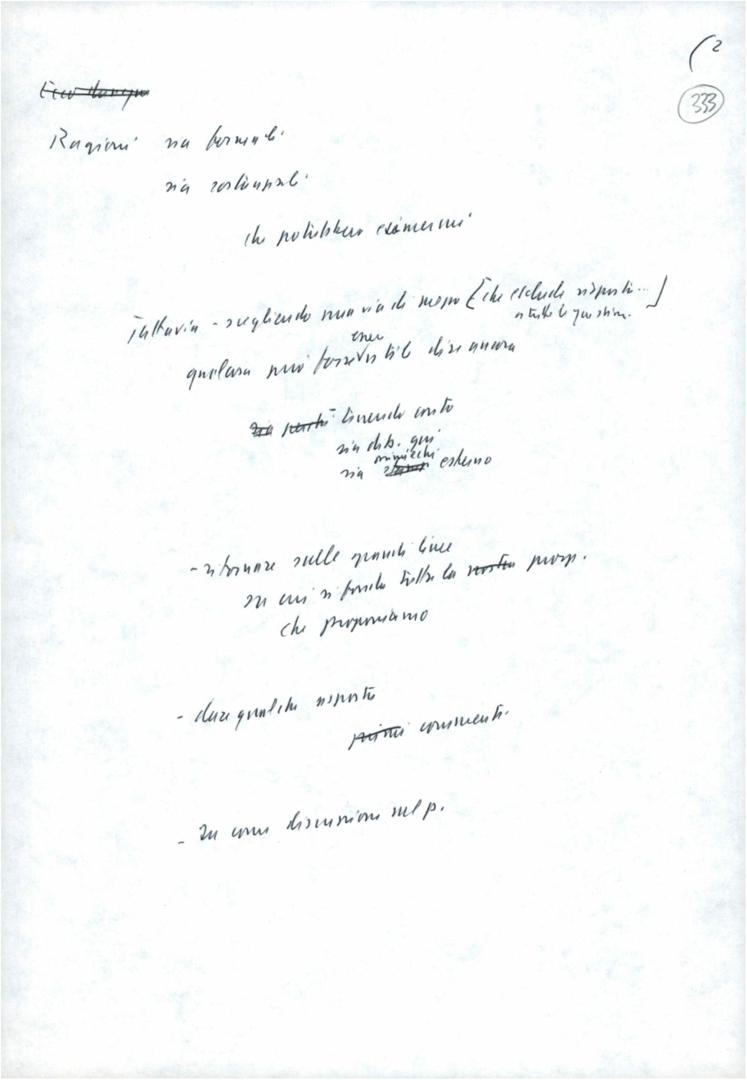 (2
333
Ecco dunque
Ragioni sia formali
sia sostanziali
che potrebbero esimermi
Tuttavia - scegliendo una via di mezzo [che esclude risposte...]
a tutte le questioni
qualcosa può forse essere utile dire ancora
sia perché tenendo conto
sia dib. qui
sia esterno
- ritornare sulle grandi linee
su cui si fonda tutta la nostra prosp.
che proponiamo
- dare qualche risposta
primi commenti
- In corso discussione sul p.